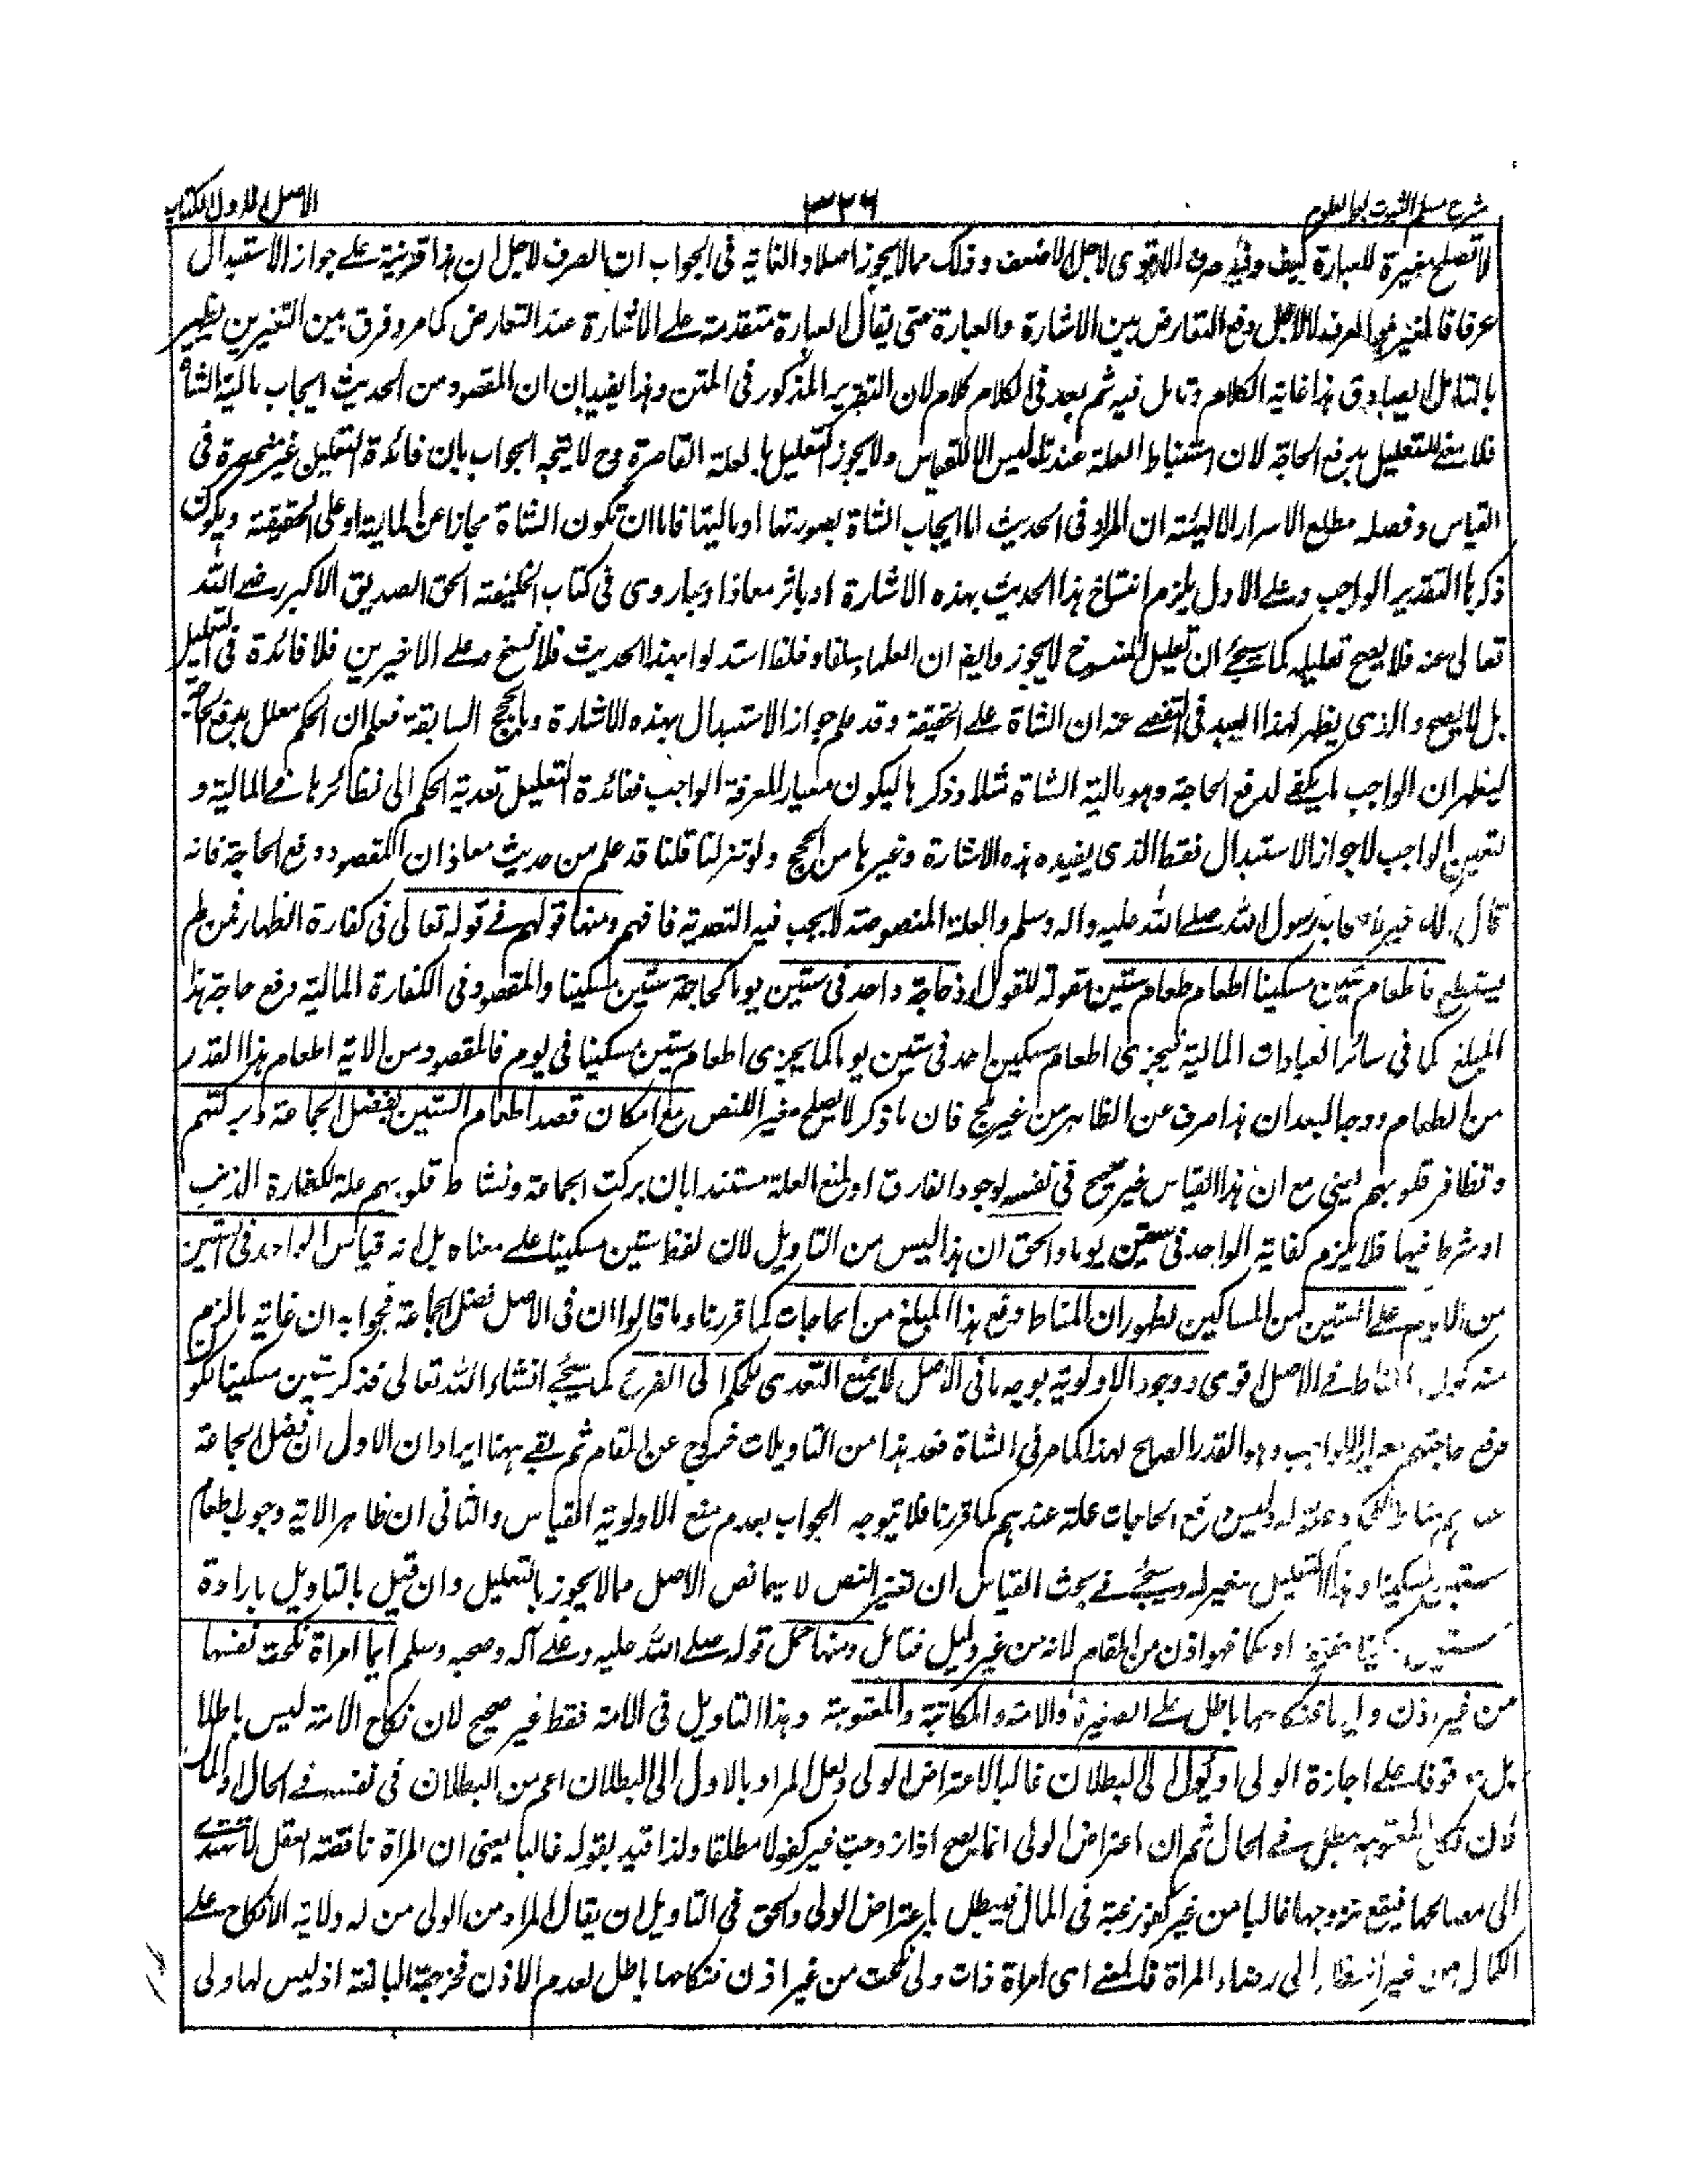 شرح مسلم الثبوت لبحر العلوم
٣٣٦
الاصل الاول الكتاب
لا تصلح مغيرة للعبارة كيف وفيه صرف الاقوى لاجل الاضعف وذلك مما لا يجوز اصلا والغاية فى الجواب ان الصرف لاجل ان هذا قرينة على جواز الاستبدال
عرفا فالمغير هو العرف لا لاجل دفع التعارض بين الاشارة والعبارة حتى يقال العبارة متقدمة على الاشارة عند التعارض كما مر وفرق بين التغيرين يظهر
بالتامل الصادق هذا غاية الكلام وتامل فيه ثم بعد فى الكلام كلام لان التقرير المذكور فى المتن وهذا يفيدان ان المقصود من الحديث ايجاب مالية الشاة
فلا معنى للتعليل بدفع الحاجة لان استنباط العلة عندنا ليس الا للقياس ولا يجوز التعليل بالعلة القاصرة وح لا يتجه الجواب بان فائدة التعليل غير منحصرة فى
القياس وفصله مطلع الاسرار الالهية ان المراد فى الحديث اما ايجاب الشاة بصورتها او ماليتها فاما ان تكون الشاة مجازا عن المالية او على الحقيقة ويكون
ذكرها لتقدير الواجب وعلى الاول يلزم انتساخ هذا الحديث بهذه الاشارة او باثر معاذ او بما روى فى كتاب الخليفة الحق الصديق الاكبر رضى الله
تعالى عنه فلا يصح تعليله كما سيجئ ان تعليل المنسوخ لا يجوز وايضا ان العلماء سلفا وخلفا استدلوا بهذا الحديث فلا نسخ وعلى الاخيرين فلا فائدة فى التعليل
بل لا يصح والذى يظهر لهذا العبد فى التفصى عنه ان الشاة على الحقيقة وقد علم جواز الاستبدال بهذه الاشارة وبالحجج السابقة فعلم ان الحكم معلل بدفع الحاجة
ليظهر ان الواجب ما يكفى لدفع الحاجة وهو مالية الشاة مثلا وذكرها ليكون معيارا لمعرفة الواجب ففائدة التعليل تعدية الحكم الى نظائرها فى المالية و
تعيين الواجب لا جواز الاستبدال فقط الذى يفيده هذه الاشارة وغيرها من الحجج ولو تنزلنا قلنا قد علم من حديث معاذ ان المقصود دفع الحاجة فانه
قال خير لاصحاب رسول الله صلى الله عليه واله وسلم والعلة المنصوصة لا يجب فيه التعدية فافهم ومنها قولهم فى قوله تعالى فى كفارة الظهار فمن لم
يستطع فاطعام ستين مسكينا اطعام طعام ستين مقولة للقول اذ حاجة واحد فى ستين يوما كحاجة ستين مسكينا والمقصود فى الكفارة المالية دفع حاجة هذا
المبلغ كما فى سائر العبادات المالية فيجزى اطعام مسكين واحد فى ستين يوما كما يجزى اطعام ستين مسكينا فى يوم فالمقصود من الاية اطعام هذا القدر
من الطعام ووجه البعد ان هذا صرف عن الظاهر من غير ملجئ فان ما ذكر لا يصلح مغير اللنص مع امكان قصد اطعام الستين لفضل الجماعة وبركتهم
وتظافر قلوبهم يعنى مع ان هذا القياس غير صحيح فى نفسه لوجود الفارق او لمنع العلة مستندا بان بركت الجماعة ونشاط قلوبهم علة لكفارة الذنب
او شرط فيها فلا يلزم كفاية الواحد فى ستين يوما والحق ان هذا ليس من التاويل لان لفظ ستين مسكينا على معناه بل انه قياس الواحد فى الستين
من الايام على الستين من المساكين لظهور ان المناط دفع هذا المبلغ من الحاجات كما قررنا وما قالوا ان فى الاصل فضل الجماعة فجوابه ان غاية ما لزم
منه كون المناط فى الاصل اقوى ووجود الاولوية بوجه ما فى الاصل لا يمنع التعدى للحكم الى الفرع كما سيجئ انشاء الله تعالى فذكر ستين مسكينا لكون
دفع حاجتهم الواجب وهو القدر الصالح لهذا كما مر فى الشاة فعد هذا من التاويلات خروج عن المقام ثم بقى ههنا ايرادان الاول ان فضل الجماعة
مناط الحكم وعلته له وليس دفع الحاجات علة عندهم كما قررنا فلا يتوجه الجواب بعدم منع الاولوية القياس والثانى ان ظاهر الاية وجوب اطعام
ستين مسكينا وهذا التعليل مغير له وسيجئ فى بحث القياس ان تغير النص لا سيما نص الاصل مما لا يجوز بالتعليل وان قيل بالتاويل بارادة
ستين او حكما فهو اذن من المقام لانه من غير دليل فتامل ومنها حمل قوله صلى الله عليه وعلى آله وصحبه وسلم ايما امراة نكحت نفسها
من غير اذن وليها فنكاحها باطل على الصغيرة والامة والمكاتبة والمعتوهة وهذا التاويل فى الامة فقط غير صحيح لان نكاح الامة ليس باطلا
بل موقوفا على اجازة الولى او يؤل الى البطلان غالبا لاعتراض الولى ولعل المراد بالاول الى البطلان اعم من البطلان فى نفسه فى الحال او المال
لان نكاح المعتوهة مبطل فى الحال ثم ان اعتراض الولى انما يصح اذا زوجت غير كفو لا مطلقا ولذا قيد بقوله غالبا يعنى ان المراة ناقصة العقل لا تهتدى
الى مصالحها فيقع تزوجها غالبا من غير كفو رغبة فى المال فيبطل باعتراض الولى والحق فى التاويل ان يقال المراد من الولى من له ولاية الانكاح على
الكمال من غير افتقار الى رضاء المراة فالمعنى اى امراة ذات ولى نكحت من غير اذن فنكاحها باطل لعدم الاذن فخرجت البالغة اذ ليس لها ولى